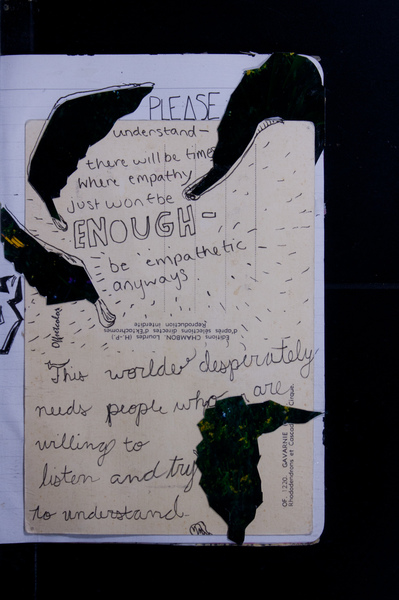 PLEASE
understand—
there will be times
where empathy
just wont be
ENOUGH -
be empathetic
anyways
Editions CHAMBON, Lourdes (H.-P.)
d'après sélections directes d'Ektachromes
Reproduction interdite
This worlde desperately
needs people who are
willing to
listen and try
to understand.
OF. 1230. GAVARNIE
Rhododendrons et Cascade Cirque.